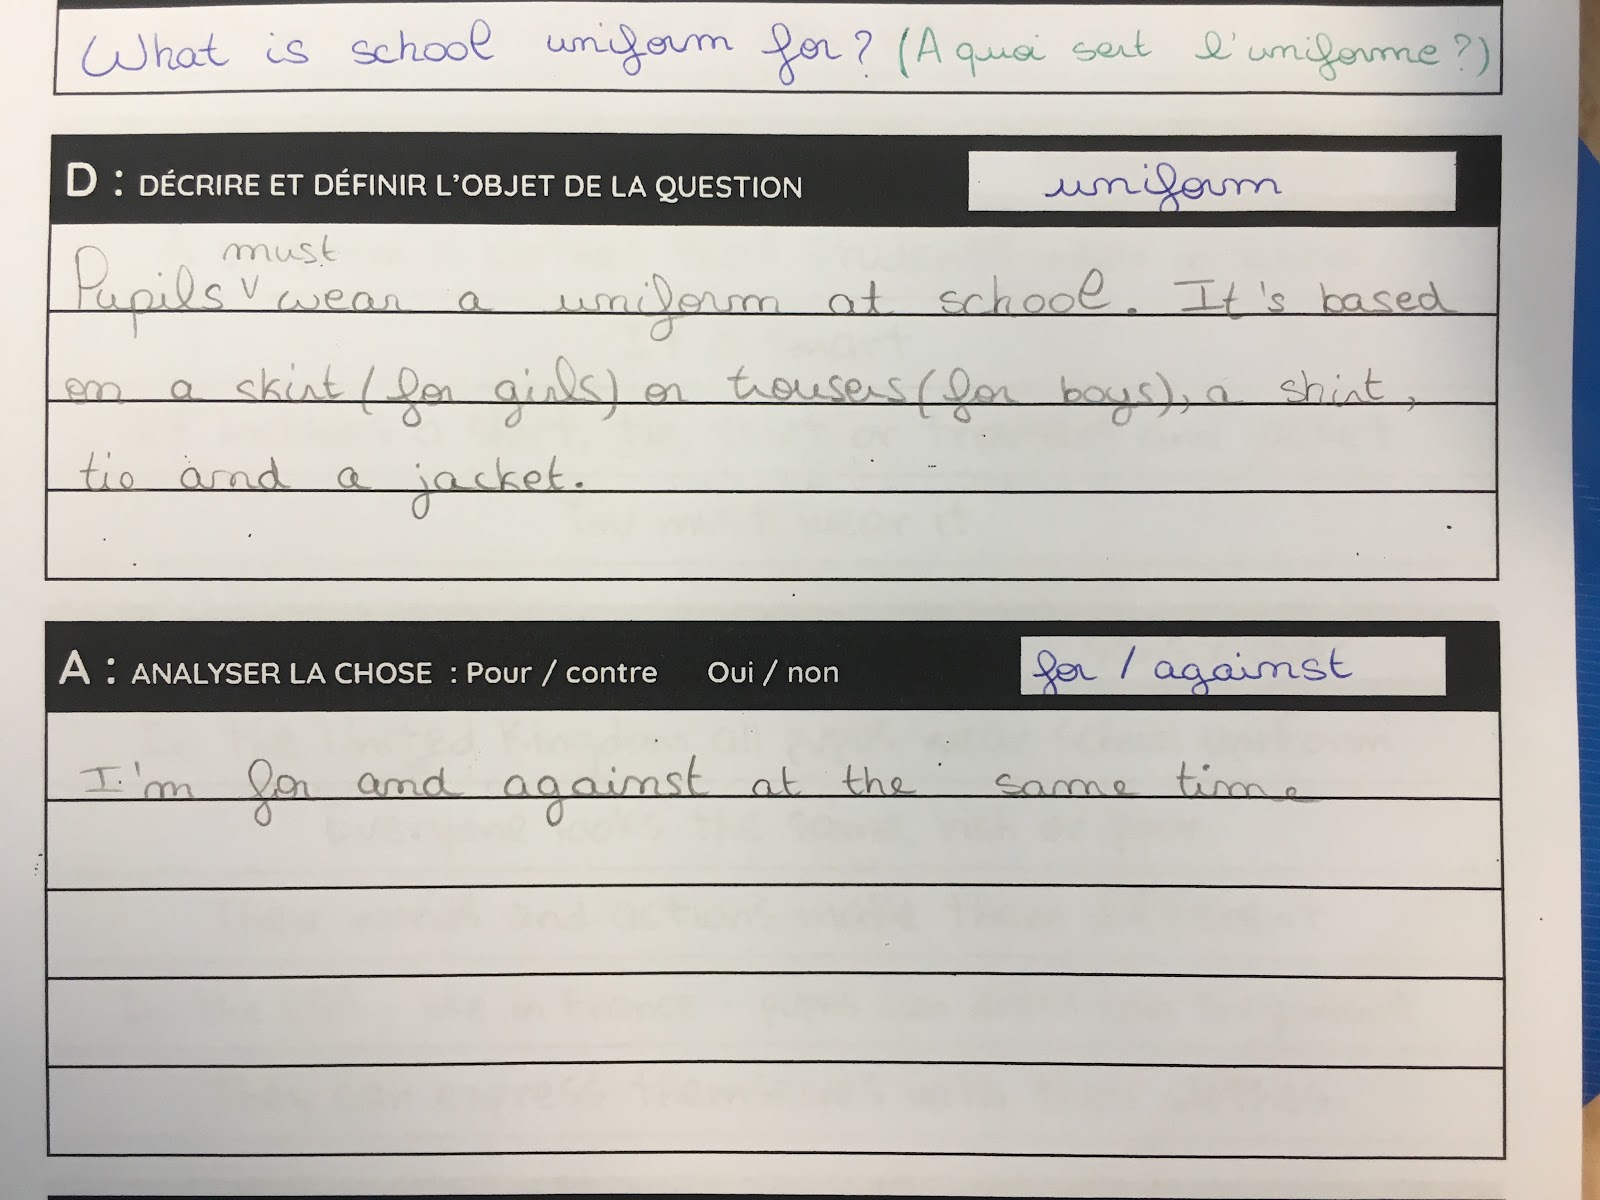 What is school uniform for? (A quoi sert l'uniforme?)
D : DÉCRIRE ET DÉFINIR L'OBJET DE LA QUESTION uniform
must
Pupils v wear a uniform at school. It's based
on a skirt (for girls) or trousers (for boys), a shirt,
tie and a jacket.
A : ANALYSER LA CHOSE : Pour / contre Oui / non for / against
I'm for and against at the same time